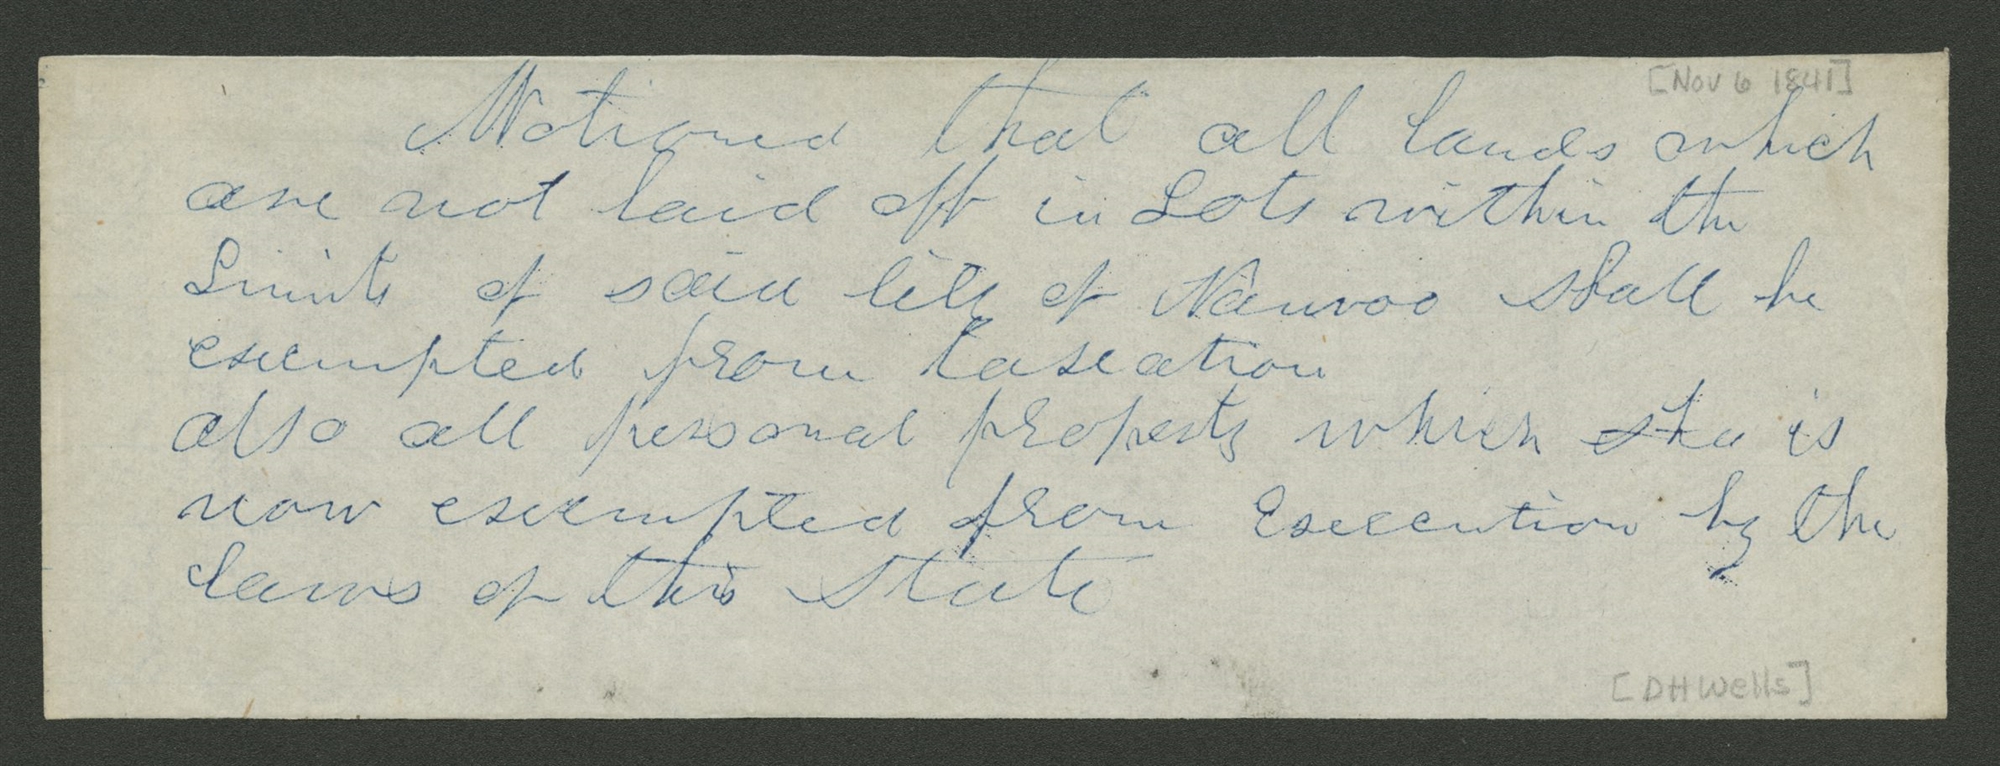 [Nov 6 1841]
Motioned that all lands which
are not laid off in Lots within the
Limits of said City of Nauvoo shall be
exempted from taxation
also all personal property which is
now exempted from Execution by the
laws of this State
[DHWells]